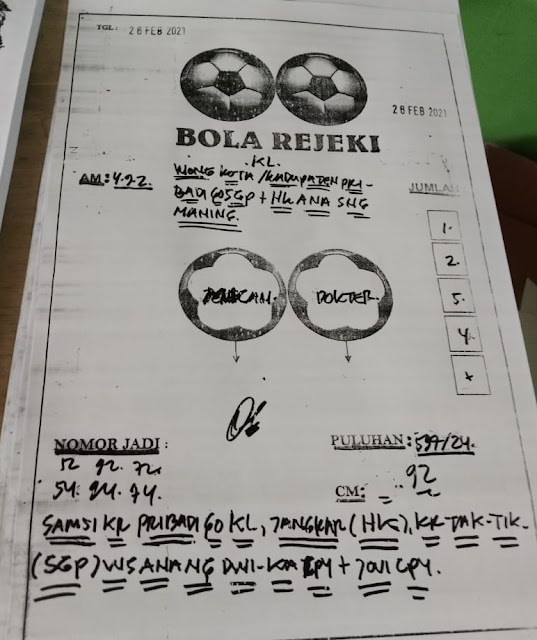 TGL: 26 FEB 2021
26 FEB 2021
BOLA REJEKI
KL.
AM: 4.92.
WONG KOTA/KABUPATEN PRI-
BADI GOSGP + HK ANA SNG
MANING.
JUMLAH
1.
2
5.
4.
DOKTER.
NOMOR JADI :
12 92. 72.
54. 94. 74.
PULUHAN: 597/24.
CM: 92
SAMSI KR PRIBADI GO KL, JANGKAR (HK), KR-DAK-TIK-
(SGP) WSANANG DWI-KA CPY + JOVI CPY.